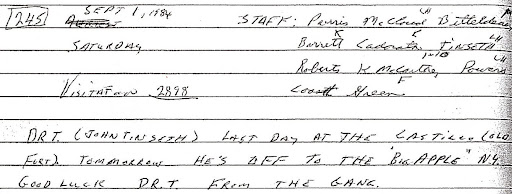 SEPT 1, 1984
245 STAFF: Parris McCloud LH Bittelston
SATURDAY Barrett K Cadorata K TINSETH LH
Roberts K McCarthy Powers LH
VISITATION 2898 F Green
DR.T. (JOHN TINSETH) LAST DAY AT THE CASTILLO (OLD
FORT). TOMMORROW HE'S OFF TO THE "BIG APPLE" N.Y.
GOOD LUCK DR.T. FROM THE GANG.